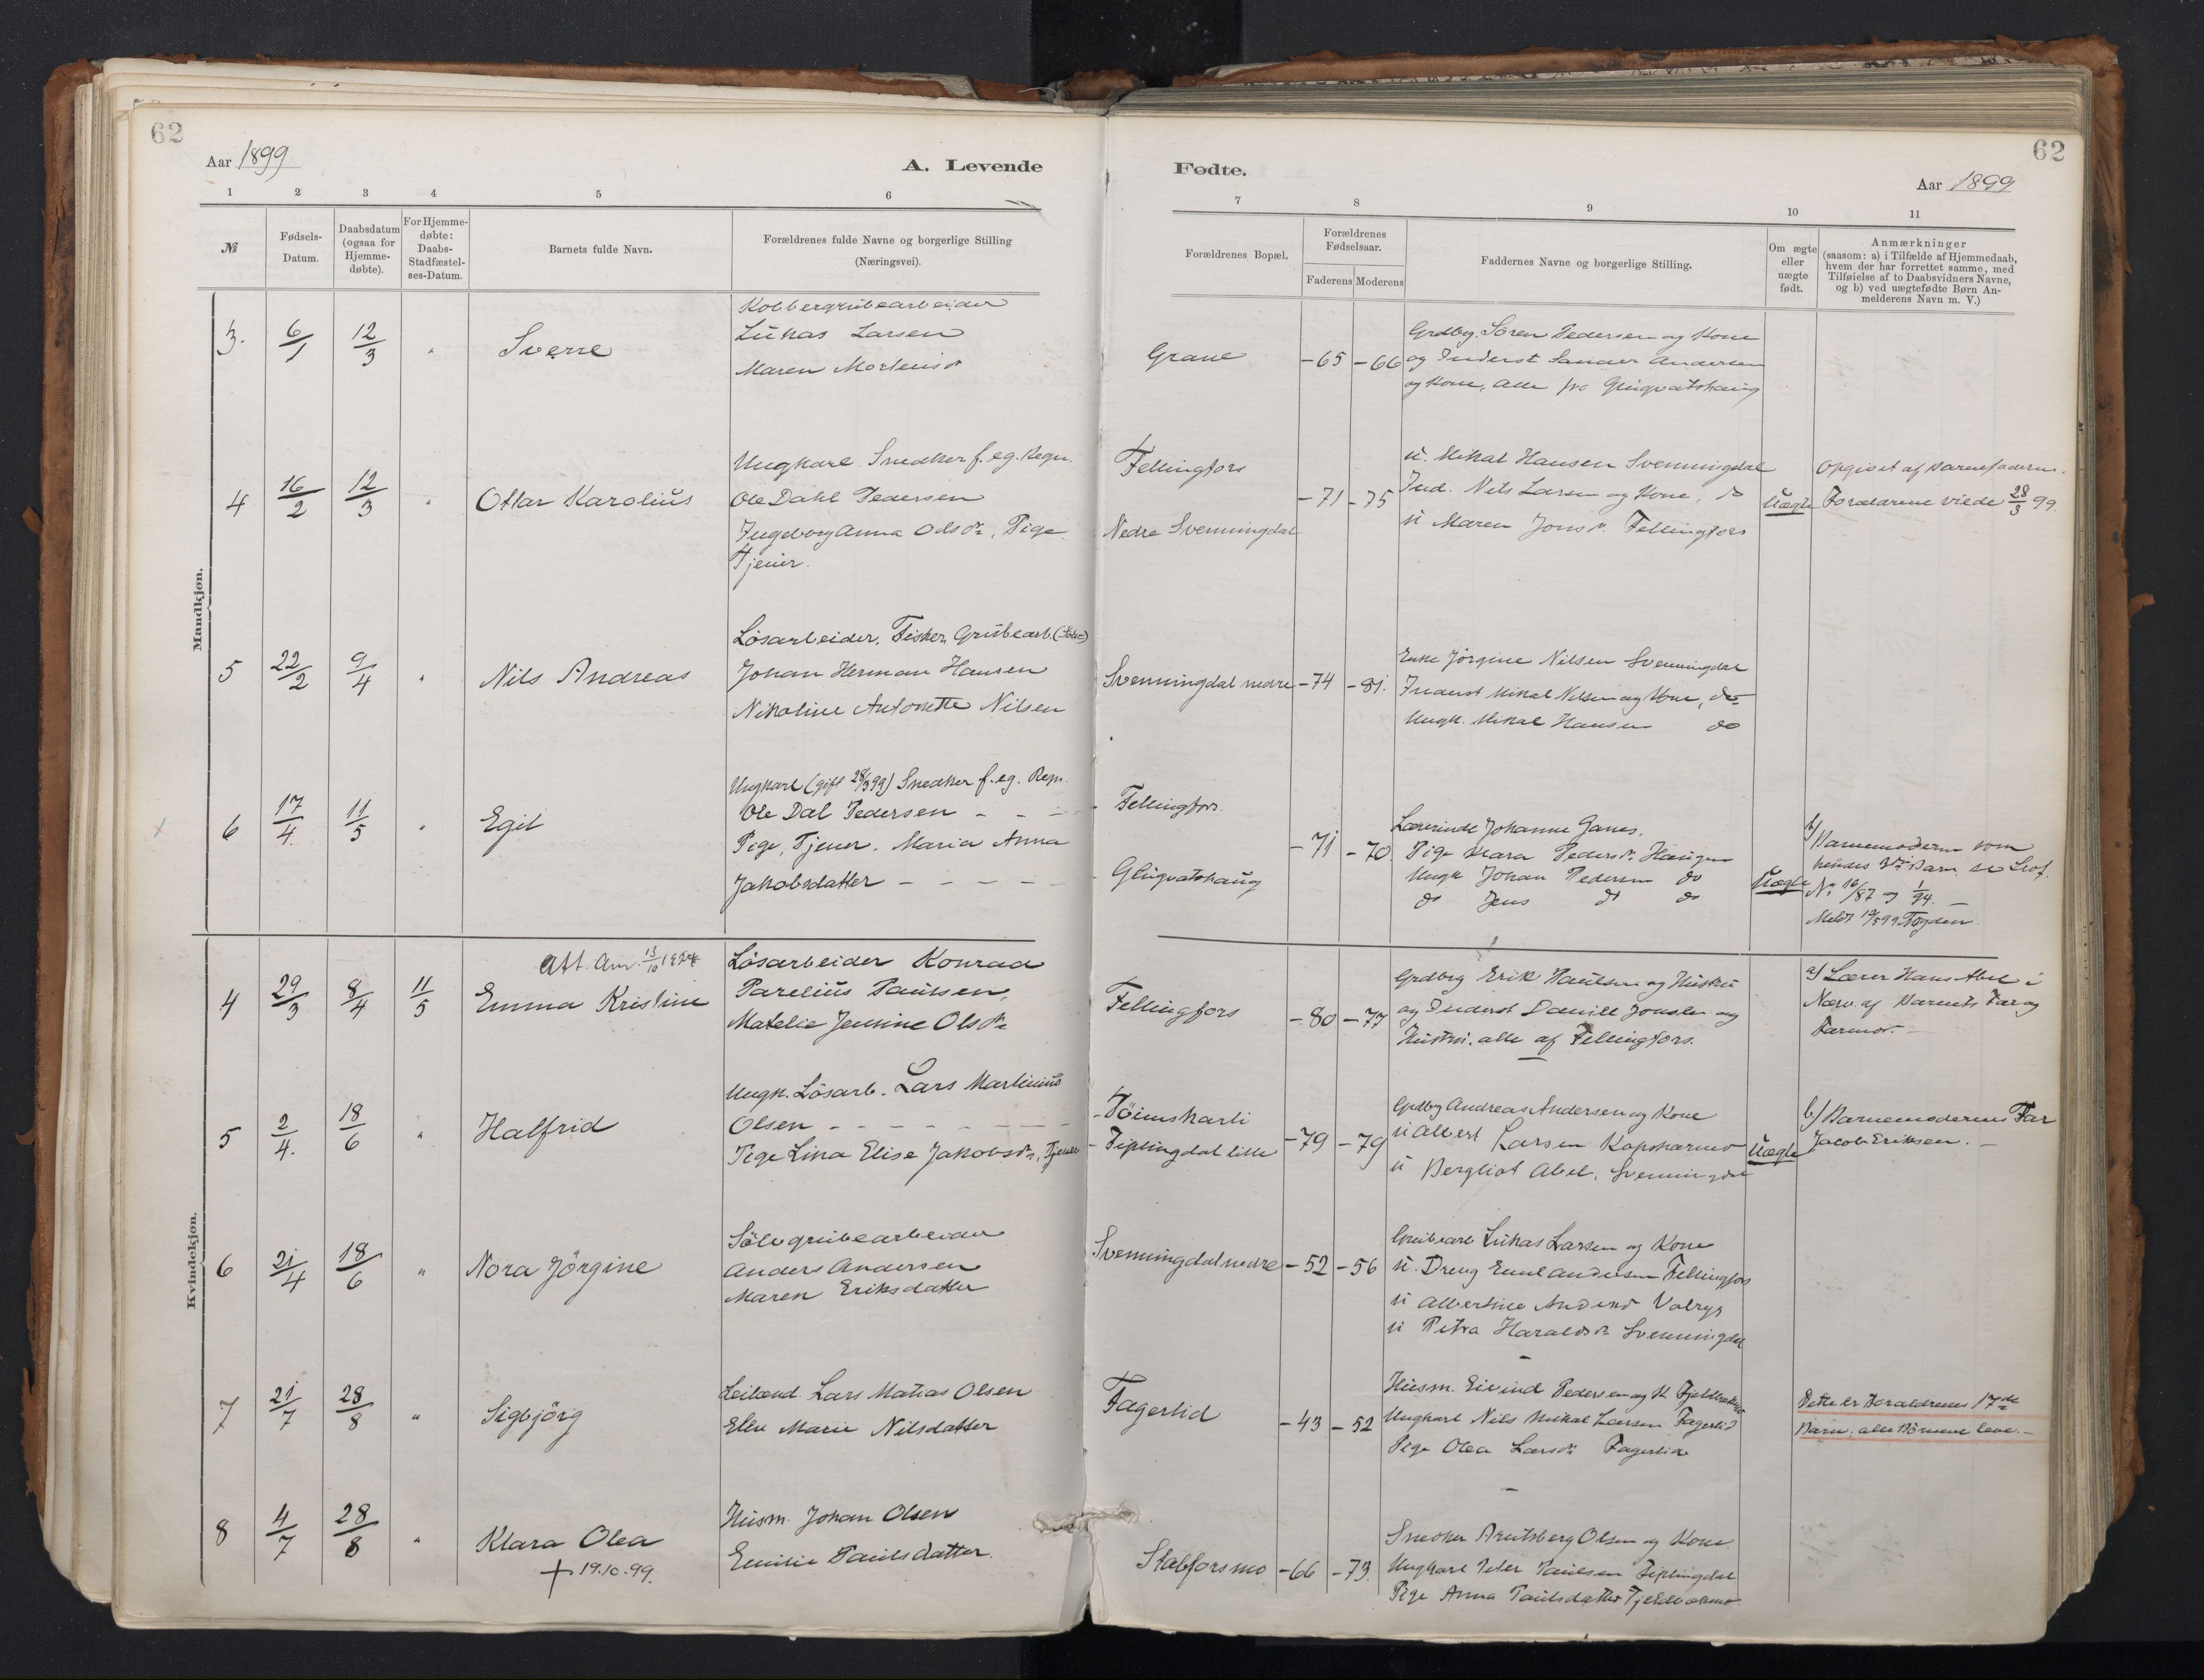 62
Aar 1899
A. Levende
1 2 3 4 5 6
№
Fødsels-Datum.
Daabsdatum (ogsaa for Hjemmedøbte).
For Hjemmedøbte: Daabs-Stadfæstelses-Datum.
Barnets fulde Navn.
Forældrenes fulde Navne og borgerlige Stilling
(Næringsvei).
Mandkjøn.
Kobbergrubearbeider
3. 6/1 12/3 " Sverre
Lukas Larsen
Maren Mortensd
Ungkarl Snedker f. eg. Regn.
4 16/2 12/3 " Ottar Karolius
Ole Dahl Pedersen
Ingeborg Anna Olsdr. Pige
Tjener.
Løsarbeider, Fisker, Grubearb.
5 22/2 9/4 " Nils Andreas
Johan Herman Hansen
Nikoline Antonette Nilsen
Ungkarl (gift 28/3 99) Snedker f. eg. Regn.
6 17/4. 11/5 " Egil
Ole Dal Pedersen - - -
Pige, Tjener. Maria Anna
Jakobsdatter - - - - -
Kvindekjøn.
Att. 13/10
4 29/3 8/4 11/5 Emma Kristine
Løsarbeider Konrad
Parelius Paulsen,
Matelie Jensine Olsdr
Ungk. Løsarb. Lars Martinius
5 2/4. 18/6 " Halfrid
Olsen - - - - - - - -
Pige Lina Elise Jakobsdr, Tjener
Sølvgrubearbeider
6 21/4 18/6 " Nora Jörgine
Anders Andersen
Maren Eriksdatter
7 21/7 28/8 " Sigbjörg
Leilænd. Lars Matias Olsen
Elen Marie Nilsdatter
8 4/7 28/8 " Klara Olea
+ 19.10.99.
Husm. Johan Olsen
Emilie Paulsdatter.
62
Fødte.
Aar 1899
7 8 9 10 11
Forældrenes Bopæl.
Forældrenes Fødselsaar.
Faderens Moderens
Faddernes Navne og borgerlige Stilling.
Om ægte eller uægte født.
Anmærkninger
(saasom: a) i Tilfælde af Hjemmedaab,
hvem der har forrettet samme, med
Tilføielse af to Daabsvidners Navne,
og b) ved uægtefødte Børn Anmelderens Navn m. V.)
Grane -65 -66
Grdbrg. Sören Pedersen og Kone
og Inderst Sander Andersen
og Kone, alle fra Gluggvatshaug
Fellingfors
Nedre Svenningdal
-71 -75
u. Mikal Hansen Svenningdal
Ind. Nils Larsen og Kone, do
u Maren Jonsdr. Fellingfors
Uægte
Opgivet af Barnefaderen.
Forældrene viede 28/3 99.
Svenningdal nedre -74 -81.
Enke Jörgine Nilsen Svenningdal
Inderst Mikal Nilsen og Kone, do
Ungk. Mikal Hansen do
- Fellingfors.
- Gluggvatshaug
-71 -70.
Lærerinde Johanne Ganes.
Pige Klara Pedersdr. Haugen
Ungk Johan Pedersen do
do Jens do do
Uægte
b) Barnemoderen som
hendes 3die Barn. se
No 16/87 og 1/94. -
Meldt 19/5 99. Fogden.
Fellingfors -80 -77
Grdbrg Erik Paulsen og Hustru
og Inderst Daniel Jonsen og
Hustru. alle af Fellingfors.
a) Lærer Hans Abel i
Nærv. af Barnets Far og
Farmor. -
- Töimskarli
- Fiplingdal lille
-79 -79
Grdbrg Andreas Andersen og Kone
u Albert Larsen Kapskarmo
u Bergliot Abel, Svenningdal
Uægte
b) Barnemoderens Far
Jacob Eriksen. -
Svenningdal nedre -52 -56
Grubearb Lukas Larsen og Kone
u. Dreng Emil Andersen Fellingfors
u Albertine Andersd
u Petra Haraldsdr. Svenningdal
Fagerlid -43 -52
Husm. Eivind Pedersen og K.
Ungkarl Nils Mikal Larsen Fagerlid
Pige Olea Larsdr. Fagerlid
Dette er Forældrenes 17de
Barn, alle Börnene leve. -
Stabforsmo -66 -73.
Snedker Arntsberg Olsen og Kone.
Ungkarl Peter Paulsen Fiplingdal
Pige Anna Paulsdatter